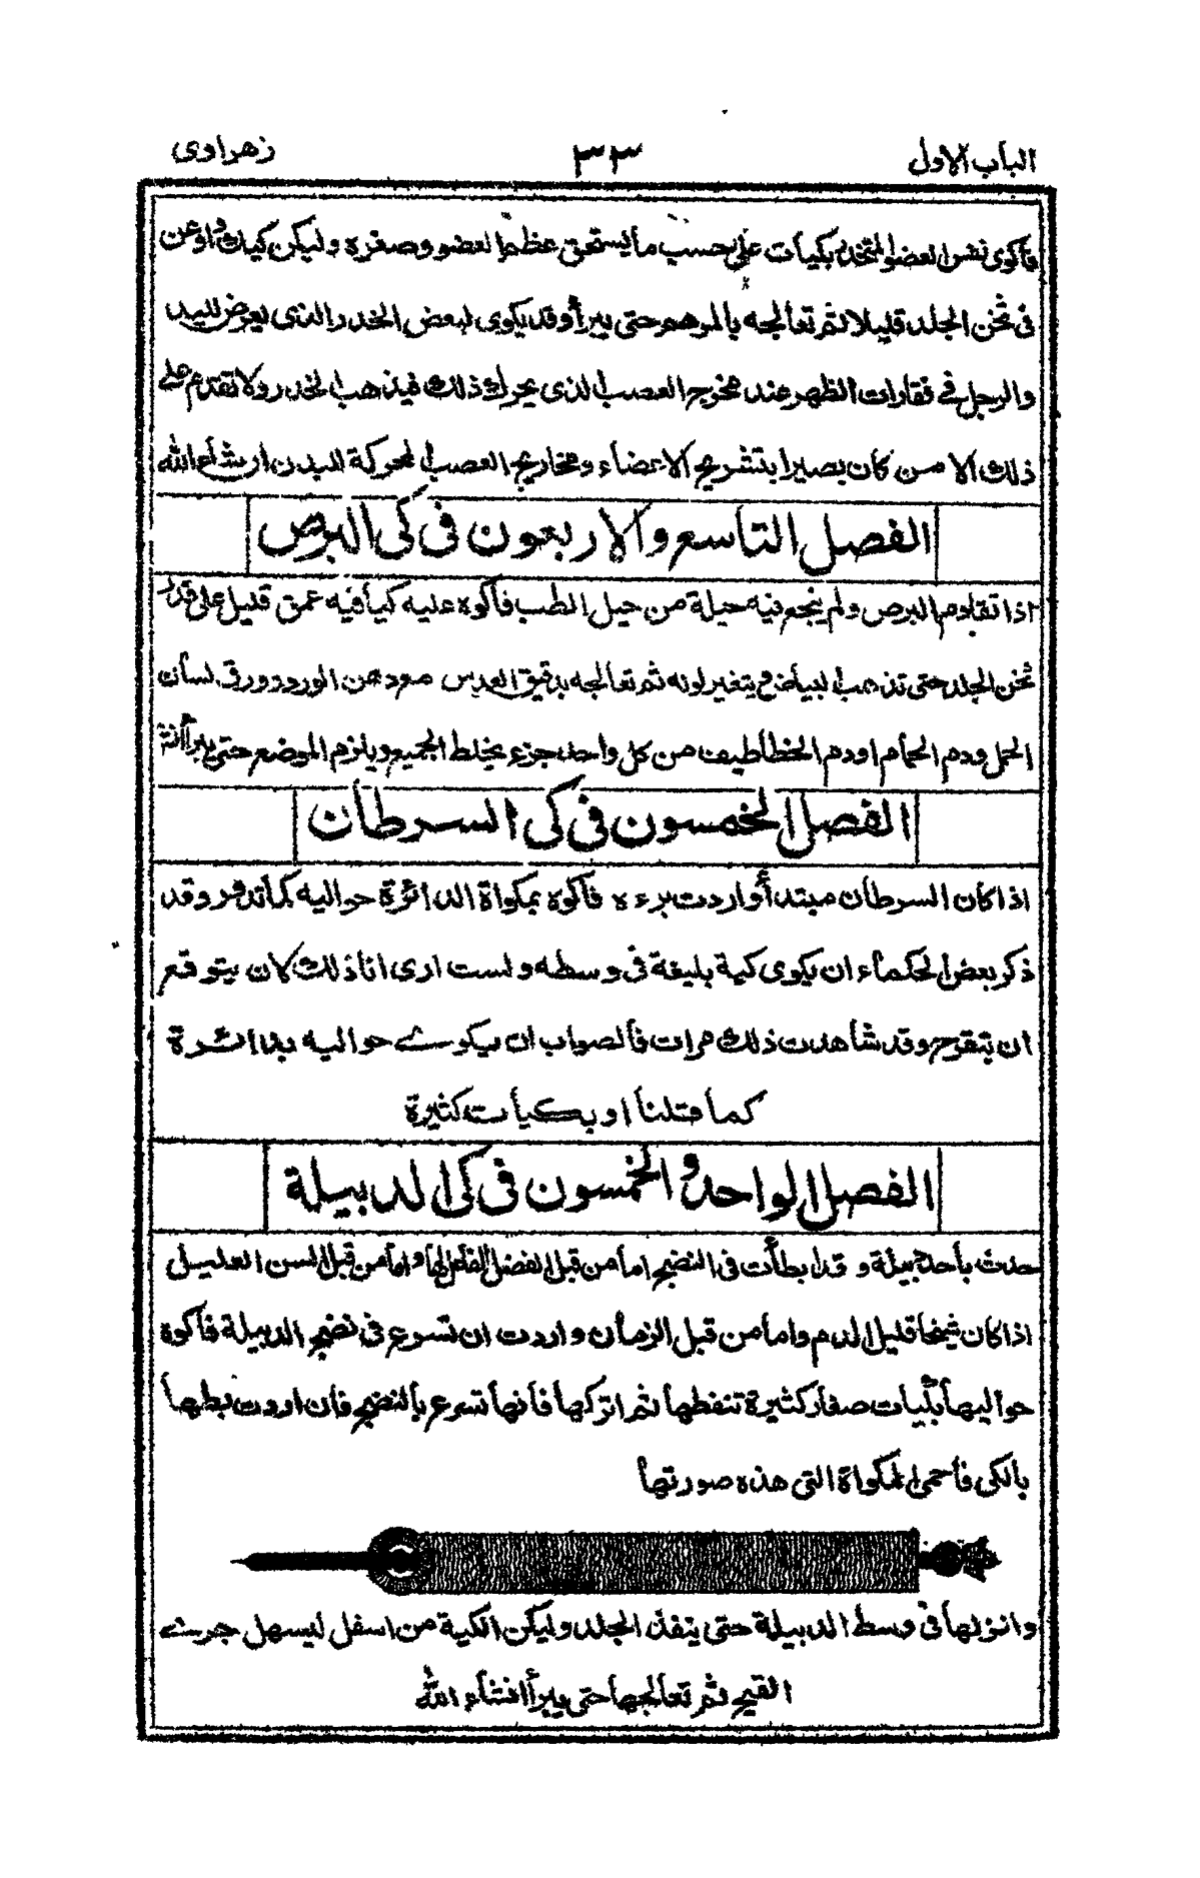 الباب الاول
٣٣
زهراوى
فأكوى نفس العضو المتخدر بكيات على حسب ما يستحق عظم العضو وصغره وليكن كيك
فى ثخن الجلد قليلا ثم تعالجه بالمرهم حتى يبرأ وقد يكوى لبعض الخدر الذى يعرض لليد
والرجل فى فقارات الظهر عند مخرج العصب الذى يحرك ذلك فيذهب الخدر ولا تقدم على
ذلك الا من كان بصيرا بتشريح الاعضاء ومخاريج العصب المحركة للبدن ان شاء الله
الفصل التاسع والاربعون فى كى البرص
اذا تقادم البرص ولم ينجع فيه حيلة من حيل الطب فأكوه عليه كيا فيه عمق قليل على قدر
ثخن الجلد حتى تذهب البياض ويتغير لونه ثم تعالجه بدقيق العدس مع دهن الورد وورق لسان
الحمل ودم الحمام او دم الخطاطيف من كل واحد جزء يخلط الجميع ويلزم الموضع حتى يبرأ
الفصل الخمسون فى كى السرطان
اذا كان السرطان مبتدأ واردت برءه فأكوه بمكواة الدائرة حواليه كما تدور وقد
ذكر بعض الحكماء ان يكوى كية بليغة فى وسطه ولست ارى انا ذلك لان يتوقع
ان يتقرح وقد شاهدت ذلك مرات فالصواب ان يكوى حواليه بدائرة
كما قلنا او بكيات كثيرة
الفصل الواحد والخمسون فى كى الدبيلة
حدث بأحد دبيلة وقد ابطأت فى النضج اما من قبل الفضل الفاعل لها واما من قبل السن العليل
اذا كان شيخا قليل الدم واما من قبل الزمان واردت ان تسرع فى نضج الدبيلة فأكوه
حواليها بكيات صغار كثيرة تنفطها ثم اتركها فأنها تسرع بالنضج فأن اردت بطها
بالكى فأحمى المكواة التى هذه صورتها
وانزلها فى وسط الدبيلة حتى ينفذ الجلد وليكن الكية من اسفل ليسهل جرى
القيح ثم تعالجها حتى يبرأ انشاء الله